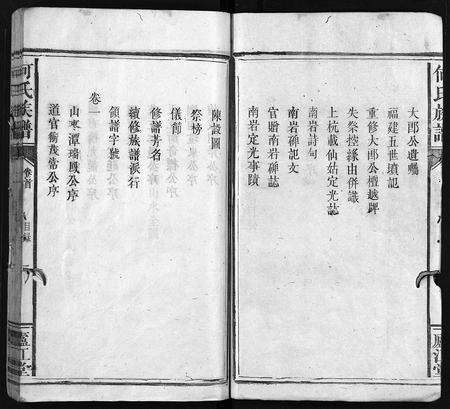 何氏族譜
廬江堂
大郎公遺囑
福建五世墳記
重修大郎公檀越牌
失祭控緣由併讖
上杭載仙姑定光誌
南岩詩句
南岩碑記文
官贈南岩碑誌
南岩定光事蹟
陳設圖
祭榜
儀節
修譜芳名
續修族譜派行
領譜字號
卷一
山寒潭瑞鳳公序
道官衛茂常公序
何氏族譜
卷首
目錄
廬江堂